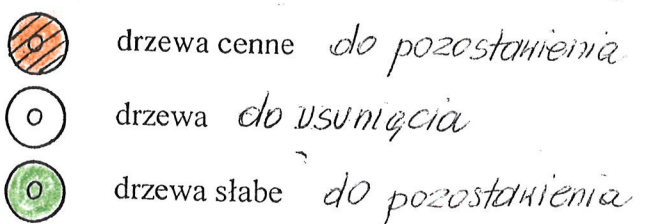 drzewa cenne do pozostawienia
drzewa do usunięcia
drzewa słabe do pozostawienia